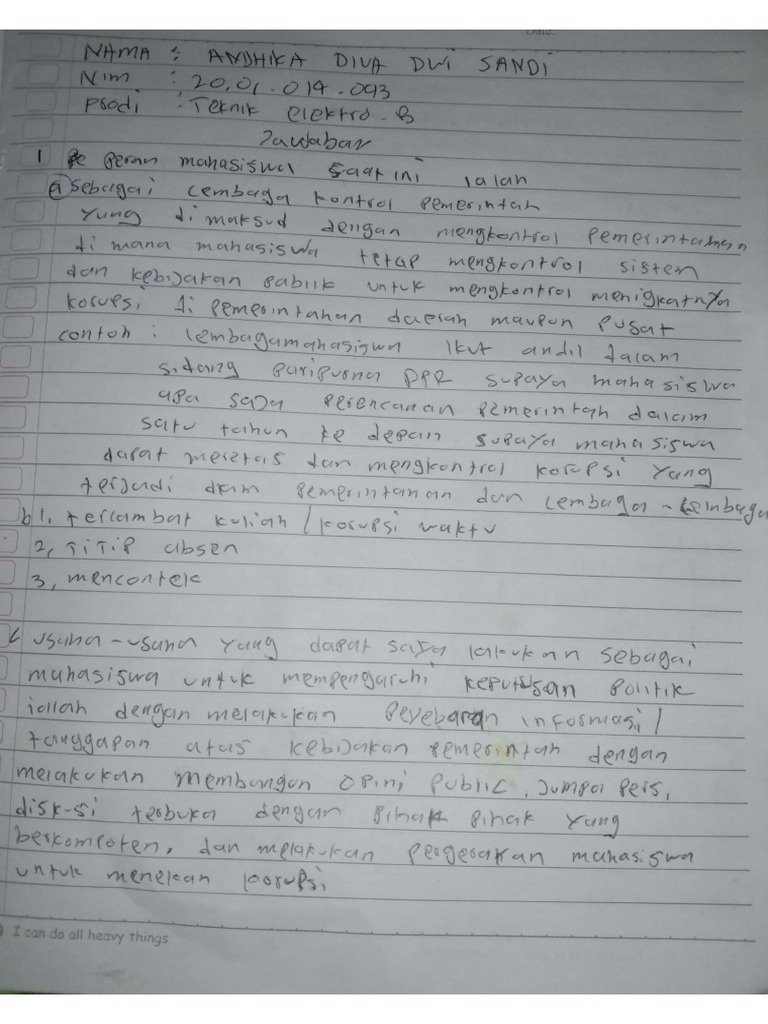 Date:
NAMA : ANDHIKA DIVA DWI SANDI
Nim : 20.01.014.093
Prodi : Teknik elektro - B
Jawaban
1 Peran mahasiswa saat ini ialah
a sebagai Lembaga kontrol pemerintah
Yang di maksud dengan mengkontrol pemerintahan
di mana mahasiswa tetap mengkontrol sistem
dan kebijakan pablik untuk mengkontrol menigkatnya
korupsi di pemerintahan daerah maupun pusat
contoh : lembagamahasiswa ikut andil dalam
sidang paripurna DPR supaya mahasiswa
apa saja perencanan pemerintah dalam
satu tahun ke depan supaya mahasiswa
dapat meretas dan mengkontrol korupsi yang
terjadi dlam pemerintahan dan Lembaga - Lembaga
b 1, terlambat kuliah / korupsi waktu
2, TiTiP absen
3, mencontek
c usaha - usaha yang dapat saya lakukan sebagai
mahasiswa untuk mempengaruhi keputusan politik
iallah dengan melakukan Peyebaran informasi /
tanggapan atas kebijakan pemerintah dengan
melakukan membangan opini public, Jumpa pers,
diskusi terbuka dengan pihak pihak yang
berkompoten, dan melakukan pergerakan mahasiswa
untuk menekan korupsi
I can do all heavy things